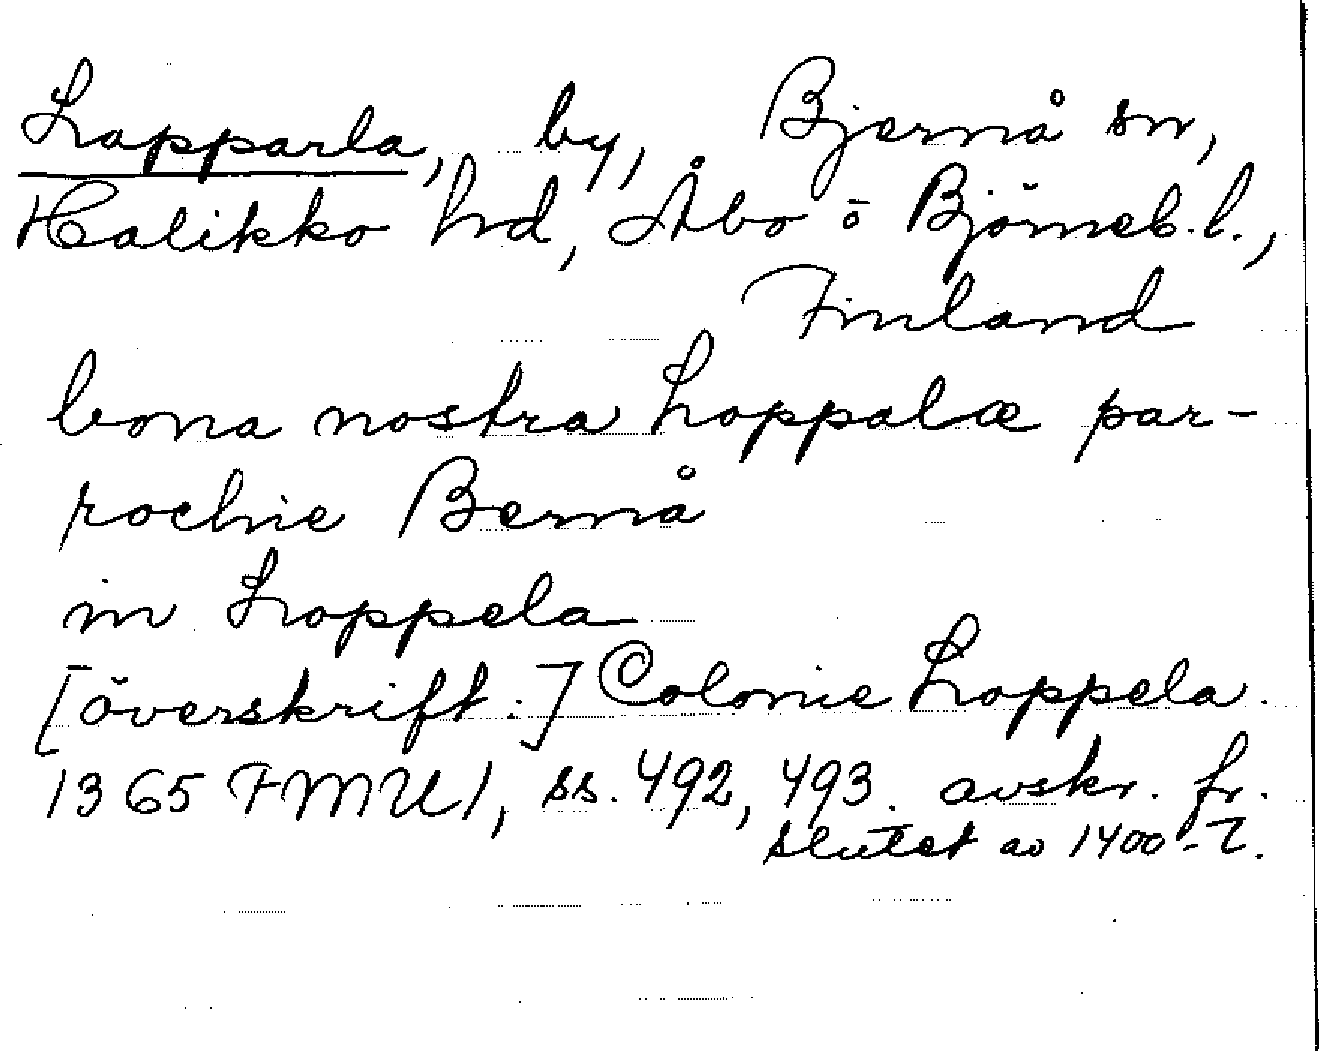 Lapparla, by, Bjernå sn,
Halikko hd, Åbo o Björneb. l.,
Finland
bona nostra Loppalæ par-
rochie Bernå
in Loppela
[överskift:] Colonie Loppela.
1365 FMU 1, ss. 492, 493. avskr. fr.
slutet av 1400-t.